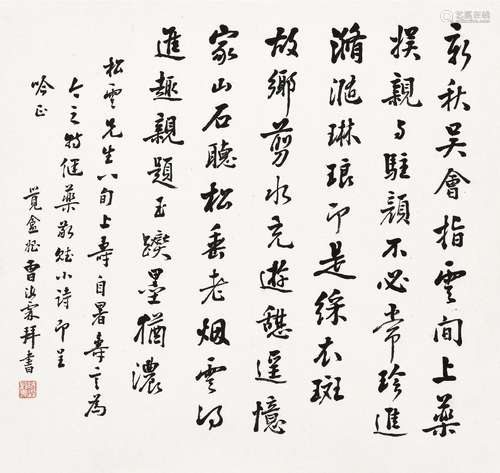 新秋吴會指雲間上藥
娛親与駐顏不必常珍進
滫瀡琳琅即是綵衣斑
故鄉剪水充遊憩遥憶
家山石聽松垂老烟雲得
進趣親題玉躞墨猶濃
松雲先生八旬上壽自署壽言為
今之特健藥敬賦小詩即呈
吟正
覓盦
拜書